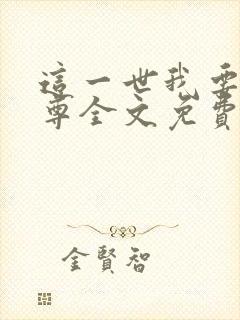 這一世我要
尊全文免費
金賢智